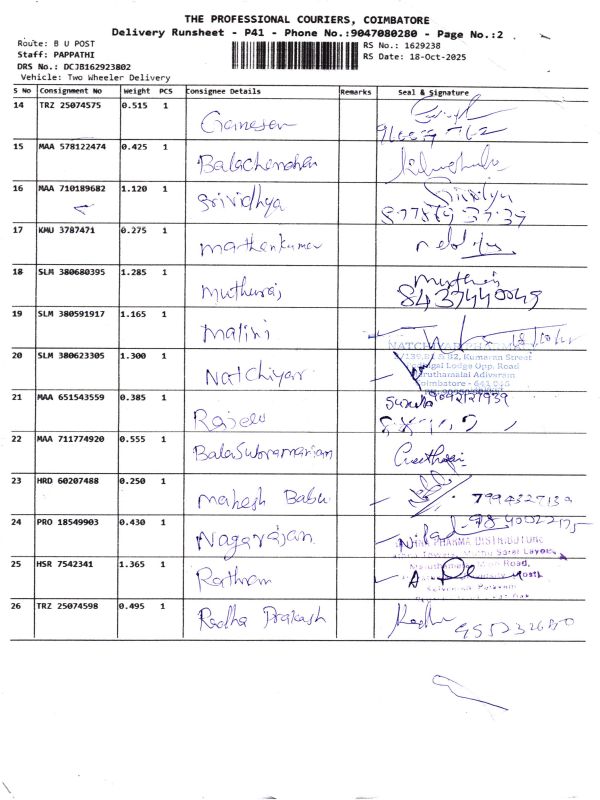 THE PROFESSIONAL COURIERS, COIMBATORE
Delivery Runsheet - P41 - Phone No.:9047080280 - Page No.:2
Route: B U POST
RS No.: 1629238
Staff: PAPPATHI
RS Date: 18-Oct-2025
DRS No.: DCJB162923802
Vehicle: Two Wheeler Delivery
S No Consignment No Weight PCS Consignee Details Remarks Seal & Signature
14 TRZ 25074575 0.515 1 Ganesan
15 MAA 578122474 0.425 1
16 MAA 710189682 1.120 1 Srividhya
17 KMU 3787471 0.275 1
18 SLM 380680395 1.285 1 Muthuraj
8437440049
19 SLM 380591917 1.165 1 Malini
20 SLM 380623305 1.300 1 Natchiyar
NATCHIYAR
82, Kumaran Street
Lodge Opp. Road
Maruthamalai Adivaram
Coimbatore - 641 046
21 MAA 651543559 0.385 1
9092127939
22 MAA 711774920 0.555 1 Balasubramaniam
23 HRD 60207488 0.250 1 Mahesh Babu
24 PRO 18549903 0.430 1 Nagarajan
PHARMA DISTRIBUTORS
25 HSR 7542341 1.365 1 Rathnam
Road,
26 TRZ 25074598 0.495 1 Radha Prakash